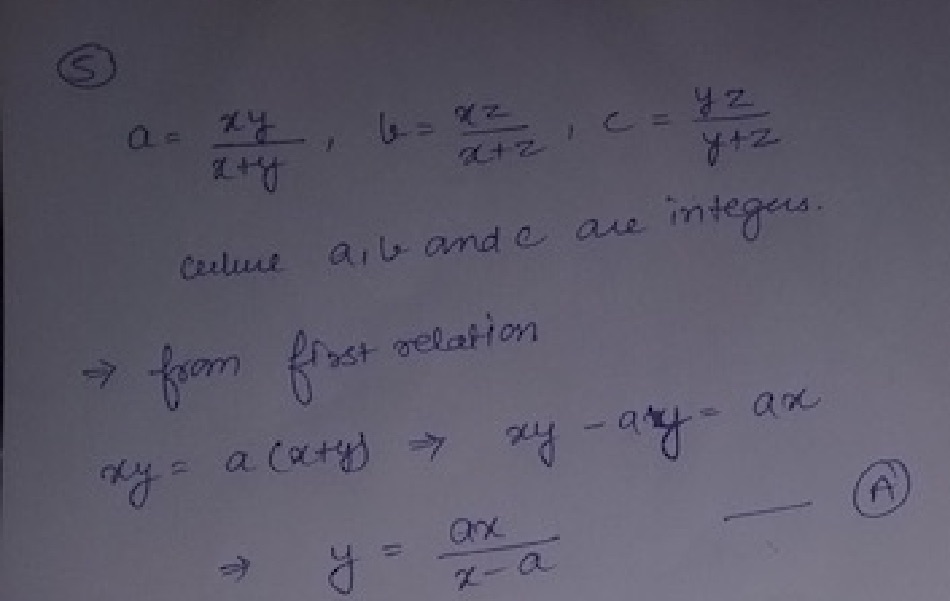 5
a = xy/x+y, b = xz/x+z, c = yz/y+z
where a, b and c are integers.
⇒ from first relation
xy = a(x+y) ⇒ xy - ay = ax
⇒ y = ax/x-a — A